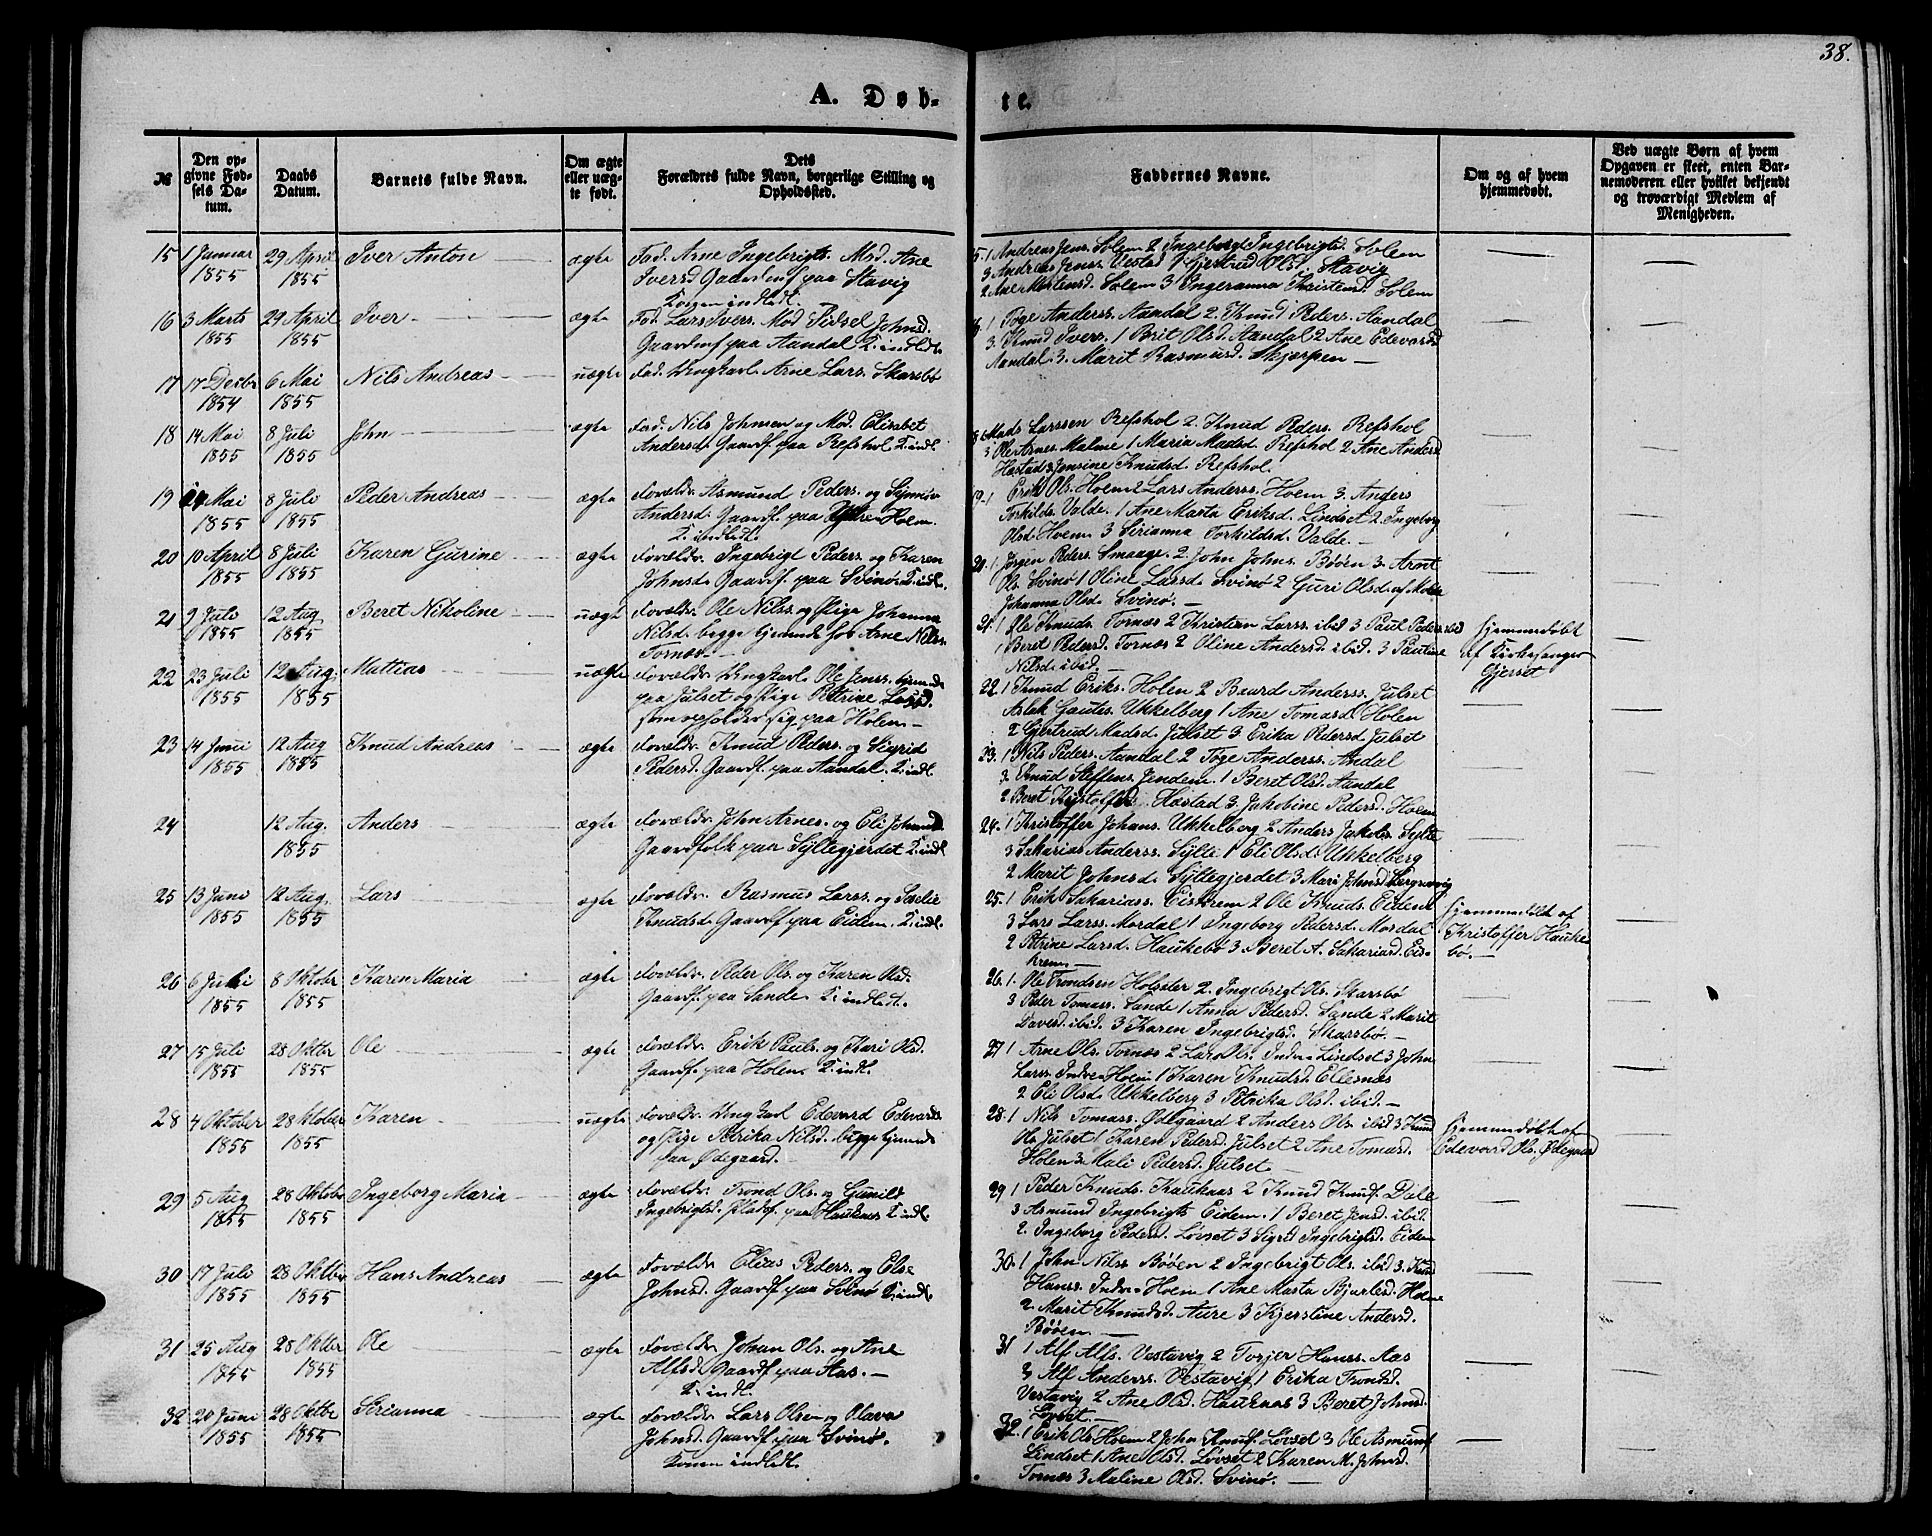 38.
A. Døb-
te.
№
Den op-
givne Fød-
sels Da-
tum.
Daabs
Datum.
Barnets fulde Navn.
Om ægte
eller uæg-
te født.
Dets
Forældres fulde Navn, borgerlige Stilling og
Opholdssted.
Faddernes Navne.
Om og af hvem
hjemmedøbt.
Ved uægte Børn af hvem
Opgaven er skeet, enten Bar-
nemoderen eller hvilket bekjendt
og troværdigt Medlem af
Menigheden.
15 1 Januar 29 April Iver Anton ægte Fad. Arne Ingebrigts. Mod. Ane
1855 1855 Iversd. Gaardmf paa Stavig
Konen indledt.
16 3 Marts 29 April Iver ægte Fad. Lars Ivers. Mod Sidsel Johnsd.
1855 1855 Gaardmf paa Aandal K. indledt.
17 17 Decbr 6 Mai Nils Andreas uægte Fad. Ungkarl Arne Lars. Skarsbø
1854 1855
18 14 Mai 8 Juli John ægte Fad. Nils Johnsen og Mod. Elisabet
1855 1855 Andersd. Gaardf. paa Refshol K. indl.
19 Mai 8 Juli Peder Andreas ægte Forældr. Asmund Peders. og Synnive
1855 1855 Andersd. Gaardf. paa Ytre Hoem.
K. indledt.
20 10 April 8 Juli Karen Gurine ægte Forældr. Ingebrigt Peders. og Karen
1855 1855 Johnsd. Gaardf. paa Svinø K. indl.
21 9 Juli 12 Aug Beret Nikoline uægte Forældr. Ole Nilss. og Pige Johanna
1855 1855 Nilsd. begge tjenende hos Arne Nils.
Tornæs
22 23 Juli 12 Aug. Mattias uægte Forældr. Ungkarl Ole Jenss. tjenende
1855 1855 paa Julset og Pige Petrine Larsd.
som opholder sig paa Holen
23 14 Juni 12 Aug Knud Andreas ægte Forældr. Knud Peders. og Sigrid
1855 1855 Pedersd. Gaardf. paa Aandal. K. indl.
24 12 Aug. Anders ægte Forældr. John Arnes. og Eli Johnsd.
1855 Gaardfolk paa Syltegjerdet K. indl
25 13 Juni 12 Aug. Lars ægte Forældr. Rasmus Larss. og Seselie
1855 1855 Knudsd. Gaardf paa Eidem. K. indl.
26 6 Juli 8 Oktober Karen Maria ægte Forældr. Peder Ols. og Karen Olsd.
1855 1855 Gaardf. paa Sande. K. indledt.
27 15 Juli 28 Oktbr Ole ægte Forældr. Erik Pauls. og Kari Olsd.
1855 1855 Gaardf. paa Holen. K. indl.
28 4 Oktober 28 Oktober Karen uægte Forældr. Ungkarl Edevard Edevards
1855 1855 og Pige Petrika Nilsd. begge tjenende
paa Ødegaard.
29 5 Aug 28 Oktober Ingeborg Maria ægte Forældr. Trond Ols. og Gunild
1855 1855 Ingebrigtsd. Pladsf. paa Hauknes K. indl.
30 17 Juli 28 Oktbr Hans Andreas ægte Forældr. Elias Peders. og Else
1855 1855 Johnsd. Gaardf paa Svinø K. indl.
31 25 Aug 28 Oktbr Ole ægte Forældr. Johan Ols. og Ane
1855 1855 Alfsd. Gaardf paa Aas.
K. indl.
32 20 Juni 28 Oktbr Serianna ægte Forældr. Lars Olsen og Olava
1855 1855 Johnsd. Gaardf. paa Svinø.
Konen indledt.
15. 1 Andreas Jens. Solem 2 Ingeborg Ingebrigtsd. Solem
3 Andreas Jenss. Vestad 1 Gjertrud Olsd. Stavig
2 Ane Mortensd. Solem 3 Ingeranna Kristensd. Solem
16. 1 Tøge Anderss. Aandal 2. Knud Peders. Aandal
3. Knud Ivers. 1 Brit Olsd. Aandal 2 Ane Edevardsd
Aandal 3. Marit Rasmusd. Skjerpen
18 Mads Larssen Refshol 2. Knud Peders. Refshol
3 Ole Arnes. Malme 1 Maria Madsd. Refshol 2 Ane Andersd
Hastad 3 Jensine Knudsd. Refshol.
19. 1 Erik Ols. Hoem 2 Lars Anderss. Hoem 3. Anders
Torkilds. Valde. 1 Ane Marta Eriksd. Lindset 2. Ingeborg
Olsd. Hoem 3 Serianna Torkildsd. Valde.
20. 1 Jørgen Peders. Smaage. 2. John Johns. Bøen 3. Arnt
Ols. Svinø 1 Oline Larsd. Svinø 2 Guri Olsd. af Molde
Johanna Olsd. Svinø.
21. 1 Ole Knuds. Tornæs 2 Kristian Larss. ibid 3 Paul Peders. ibid
1 Beret Pedersd. Tornæs 2 Oline Andersd. ibid. 3 Pauline
Nilsd. ibid.
Hjemmedøbt
af Kirkesanger
Gjerset
22. 1 Knud Eriks. Holen 2 Baard Anderss. Julset
Aslak Gautes. Ukkelberg 1 Ane Tomasd. Holen
2 Gjertrud Madsd. Julset 3 Erika Pedersd Julset
23. 1 Nils Peders. Aandal 2 Tøge Anderss. Andal
3 Knud Steffens. Jendem. 1 Beret Olsd. Aandal
2 Beret Kristoffersd. Hastad 3. Jakobine Pedersd. Hoem
24. 1 Kristoffer Johans. Ukkelberg 2 Anders Jakobs. Sylte
3 Sakarias Anderss. Sylte 1 Eli Olsd. Ukkelberg
2 Marit Johnsd. Syltegjerdet 3 Mari Johnsd
25. 1 Erik Sakariass. Eiskrem 2 Ole Knuds. Eidem
3 Lars Larss. Mordal 1 Ingeborg Pedersd. Mordal
2 Petrine Larsd. Haukebø 3. Beret A. Sakariasd. Eis-
krem
Hjemmedøbt af
Kristoffer Hauke
bø.
26. 1. Ole Trondsen Holsæter 2. Ingebrigt Ols. Skarsbø
3 Peder Tomass. Sande 1 Anna Pedersd. Sande 2 Marit
Davesd. ibid. 3 Karen Ingebrigtsd. Skarsbø.
27. 1 Arne Ols. Tornæs 2 Lars Ols. Indre Lindset 3 John
Larss. Indre Hoem 1 Karen Knudsd. Ellesnæs
2 Eli Olsd. Ukkelberg 3 Petrika Olsd. ibid.
28. 1 Nils Tomass. Ødegaard 2 Anders Ols. ibid 3 Knud
Ols. Julset 1 Karen Pedersd. Julset 2 Ane Tomasd.
Holen 3. Mali Pedersd. Julset
Hjemmedøbt af
Edevard Ols. Ødegaard
29 1 Peder Knuds. Hauknæs 2 Knud Knuds. Dale
3 Asmund Ingebrigts. Eidem. 1 Beret Jensd. ibid.
2. Ingeborg Pedersd. Løvset 3 Sigrid Ingebrigtsd. Eidem
30. 1 John Nilss. Bøen 2 Ingebrigt Ols. ibid 3. Knud
Hanss. Indre Hoem 1 Ane Marta Bjarlesd. Hoem
2. Marit Knudsd. Aure 3 Kjerstine Andersd.
Bøen.
31 1 Alf Alfs. Vestavig 2 Torjer Hanss. Aas
3 Alf Anderss. Vestavig 1 Erika Trondsd.
Vestavig 2 Ane Olsd. Hauknæs 3 Beret Johnsd.
Løvset.
32. 1 Erik Ols. Hoem 2 John Knuds. Løvset 3 Ole Asmunds
Lindset 1 Ane Olsd. Løvset 2 Karen M. Johnsd.
Tornæs 3 Maline Olsd. Svinø.